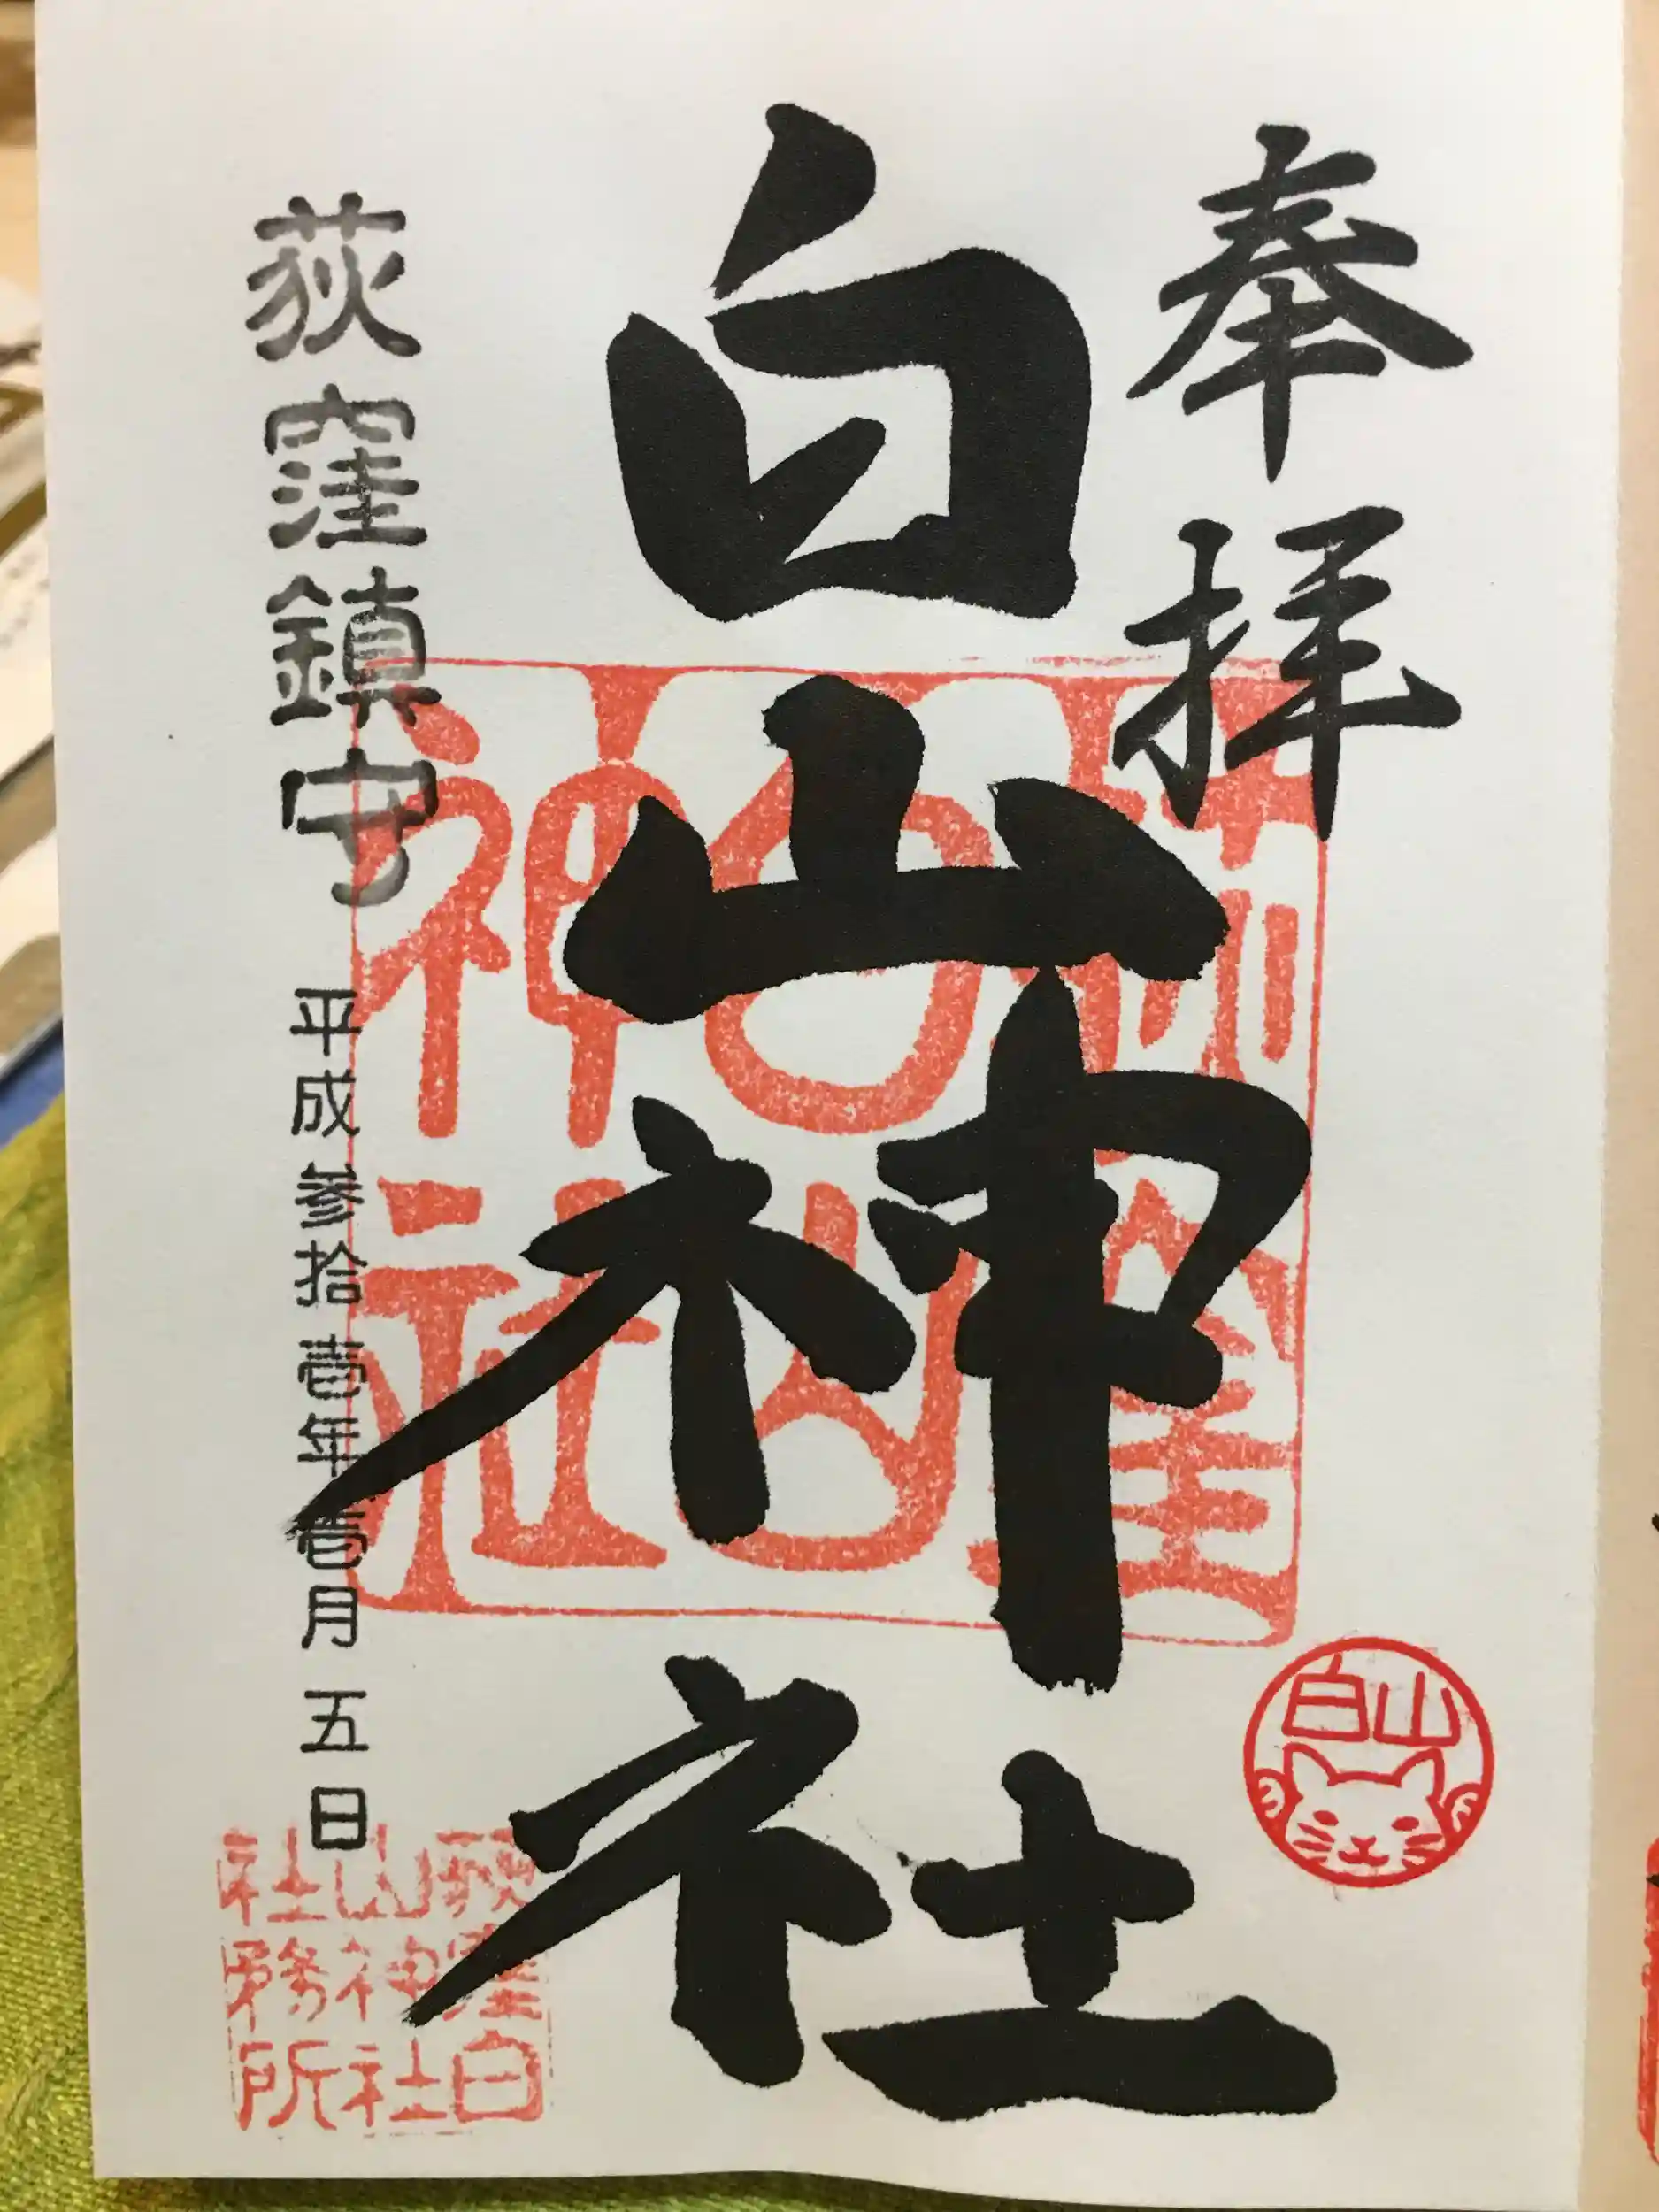 奉拝
白山神社
荻窪鎮守
平成参拾壹年壹月五日
荻窪白山神社
白山
荻窪白山神社社務所